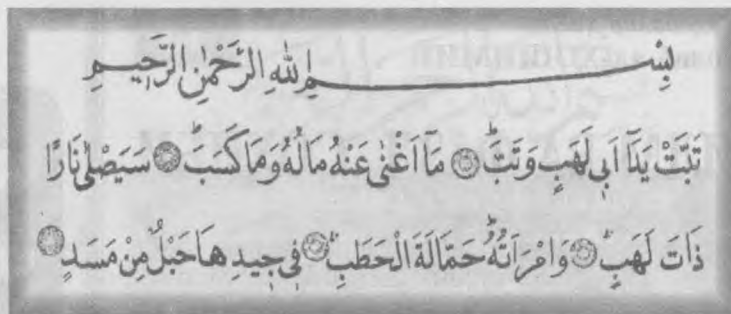 بِسْمِ اللهِ الرَّحْمٰنِ الرَّحِيمِ
تَبَّتْ يَدَٓا اَبِى لَهَبٍ وَتَبَّ ۝ مَٓا اَغْنٰى عَنْهُ مَالُهُ وَمَا كَسَبَ ۝ سَيَصْلٰى نَارًا
ذَاتَ لَهَبٍ ۝ وَامْرَاَتُهُ حَمَّالَةَ الْحَطَبِ ۝ فِى جِيدِهَا حَبْلٌ مِنْ مَسَدٍ ۝